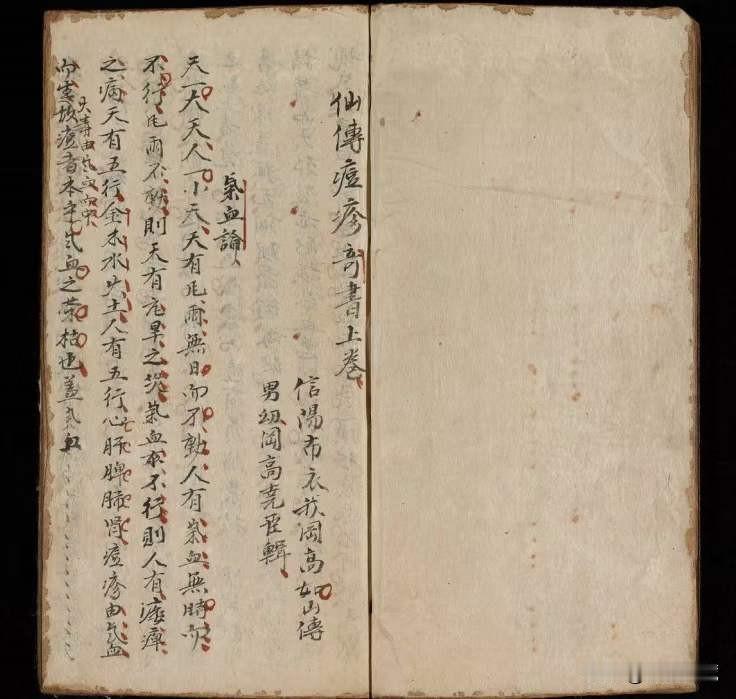 仙傳痘疹奇書上卷
信陽布衣我岡高如山傳
男紉岡高堯臣輯
氣血論
天一大天人一小天天有風雨無日而不動人有氣血無時而
不行風雨不動則天有亢旱之災氣血不行則人有
之病天有五行金木水火土人有五行心肝脾肺腎痘疹由氣血
夭壽由氣血
而 故痘者本乎氣血之榮枯也蓋氣血